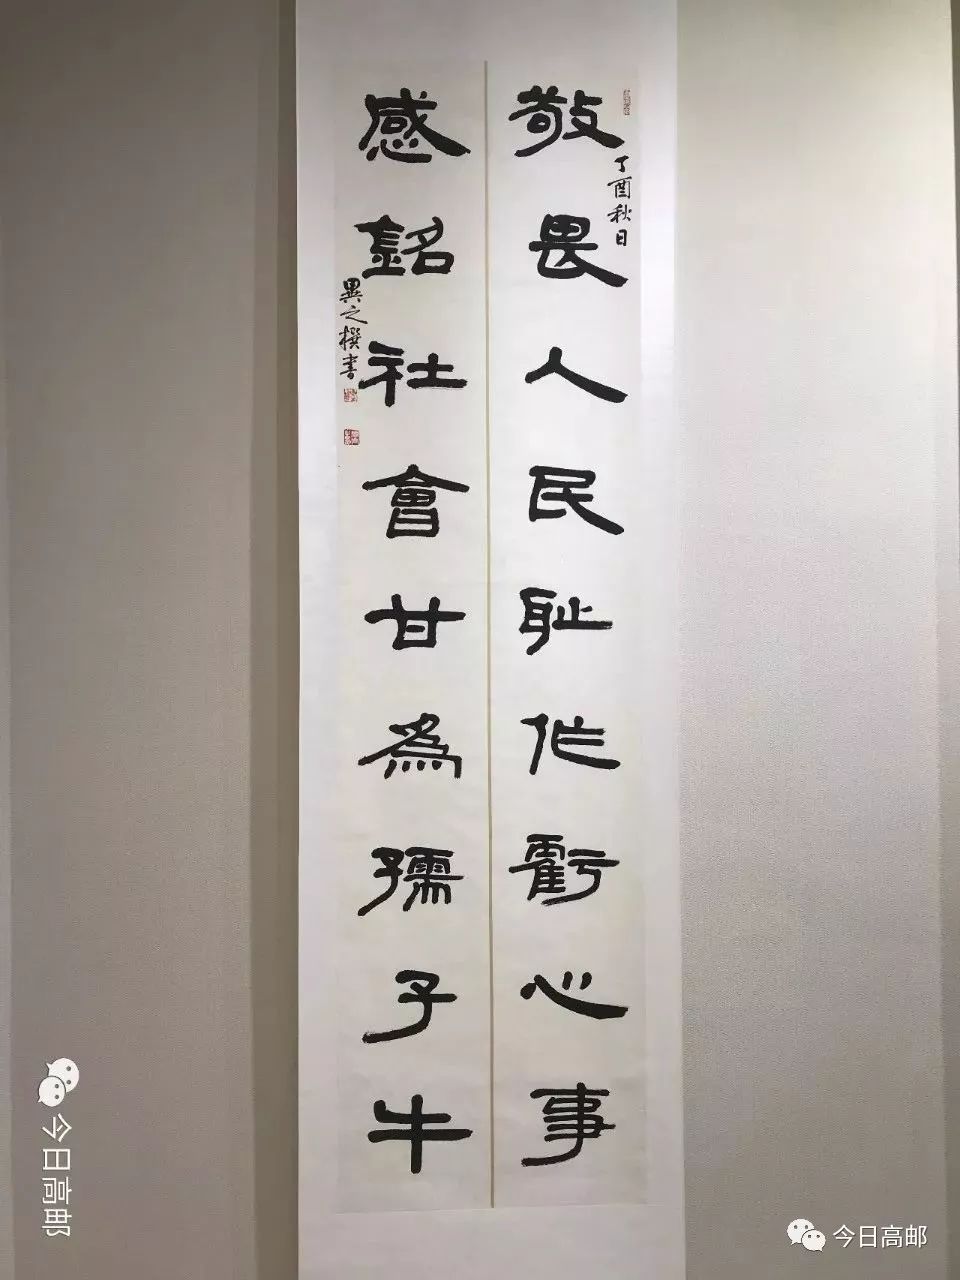 敬畏人民耻作虧心事
丁酉秋日
感銘社會甘為孺子牛
異之撰書
今日高邮
今日高邮